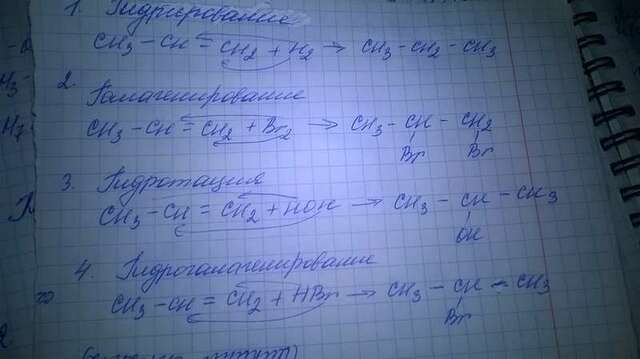 1. Гидрирование
CH3 - CH = CH2 + H2 → CH3 - CH2 - CH3
2.
Галагенирование
CH3 - CH = CH2 + Br2 → CH3 - CH - CH2
Br Br
3. Гидротация
CH3 - CH = CH2 + HOH → CH3 - CH - CH3
OH
4. Гидрогалагенирование
CH3 - CH = CH2 + HBr → CH3 - CH - CH3
Br